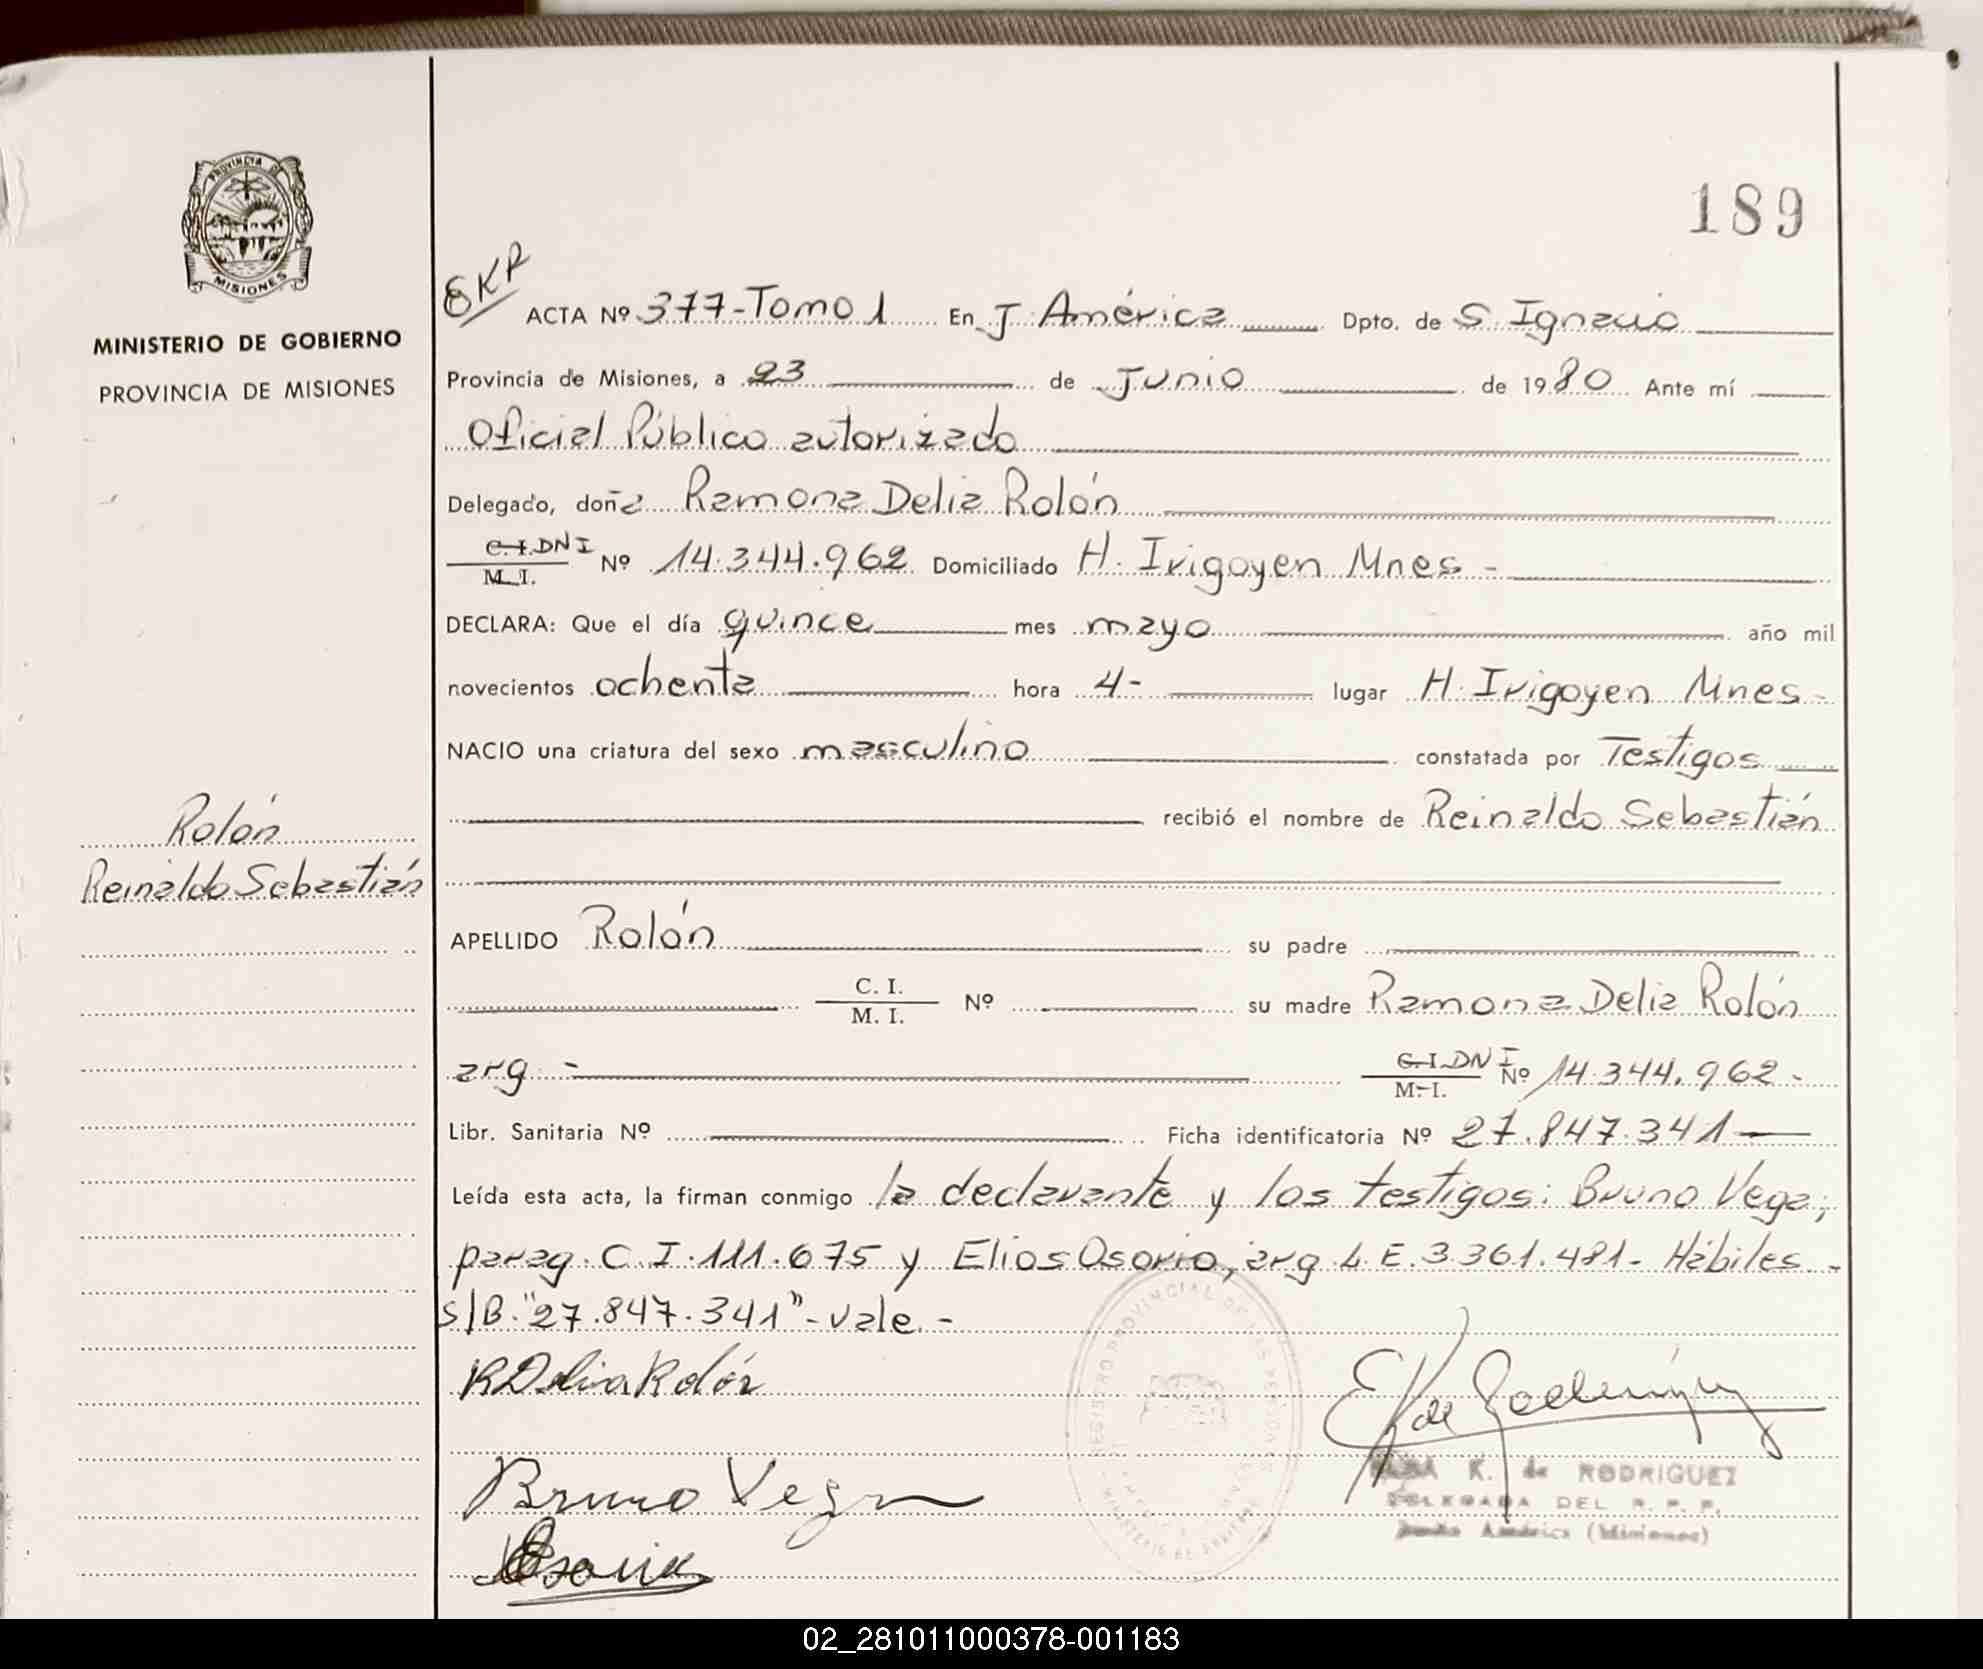 189
PROVINCIA DE
MISIONES
MINISTERIO DE GOBIERNO
PROVINCIA DE MISIONES
EKR
ACTA Nº 377-Tomo 1 En J. América Dpto. de S. Ignacio
Provincia de Misiones, a 23 de Junio de 1980 Ante mí
Oficial Público autorizado
Delegado, doña Ramona Delia Rolón
C.I. DNI
M.I. Nº 14.344.962 Domiciliado H. Irigoyen Mnes -
DECLARA: Que el día quince mes mayo año mil
novecientos ochenta hora 4- lugar H. Irigoyen Mnes-
NACIO una criatura del sexo masculino constatada por Testigos
recibió el nombre de Reinaldo Sebastián
Rolón
Reinaldo Sebastián
APELLIDO Rolón su padre
C. I.
M. I. Nº su madre Ramona Delia Rolón
arg - C.I. DNI
M.I. Nº 14.344.962-
Libr. Sanitaria Nº Ficha identificatoria Nº 27.847.341-
Leída esta acta, la firman conmigo la declarante y los testigos: Bruno Vega,
parag. C.I. 111.675 y Elios Osorio, arg. L.E. 3.361.481- Hábiles-
S/B. "27.847.341"- vale.-
R Delia Rolón
E K de Rodríguez
Bruno Vega
Osorio
K. de RODRIGUEZ
DELEGADA DEL R. P. P.
Jardín América (Misiones)
REGISTRO PROVINCIAL DE LAS PERSONAS
02_281011000378-001183